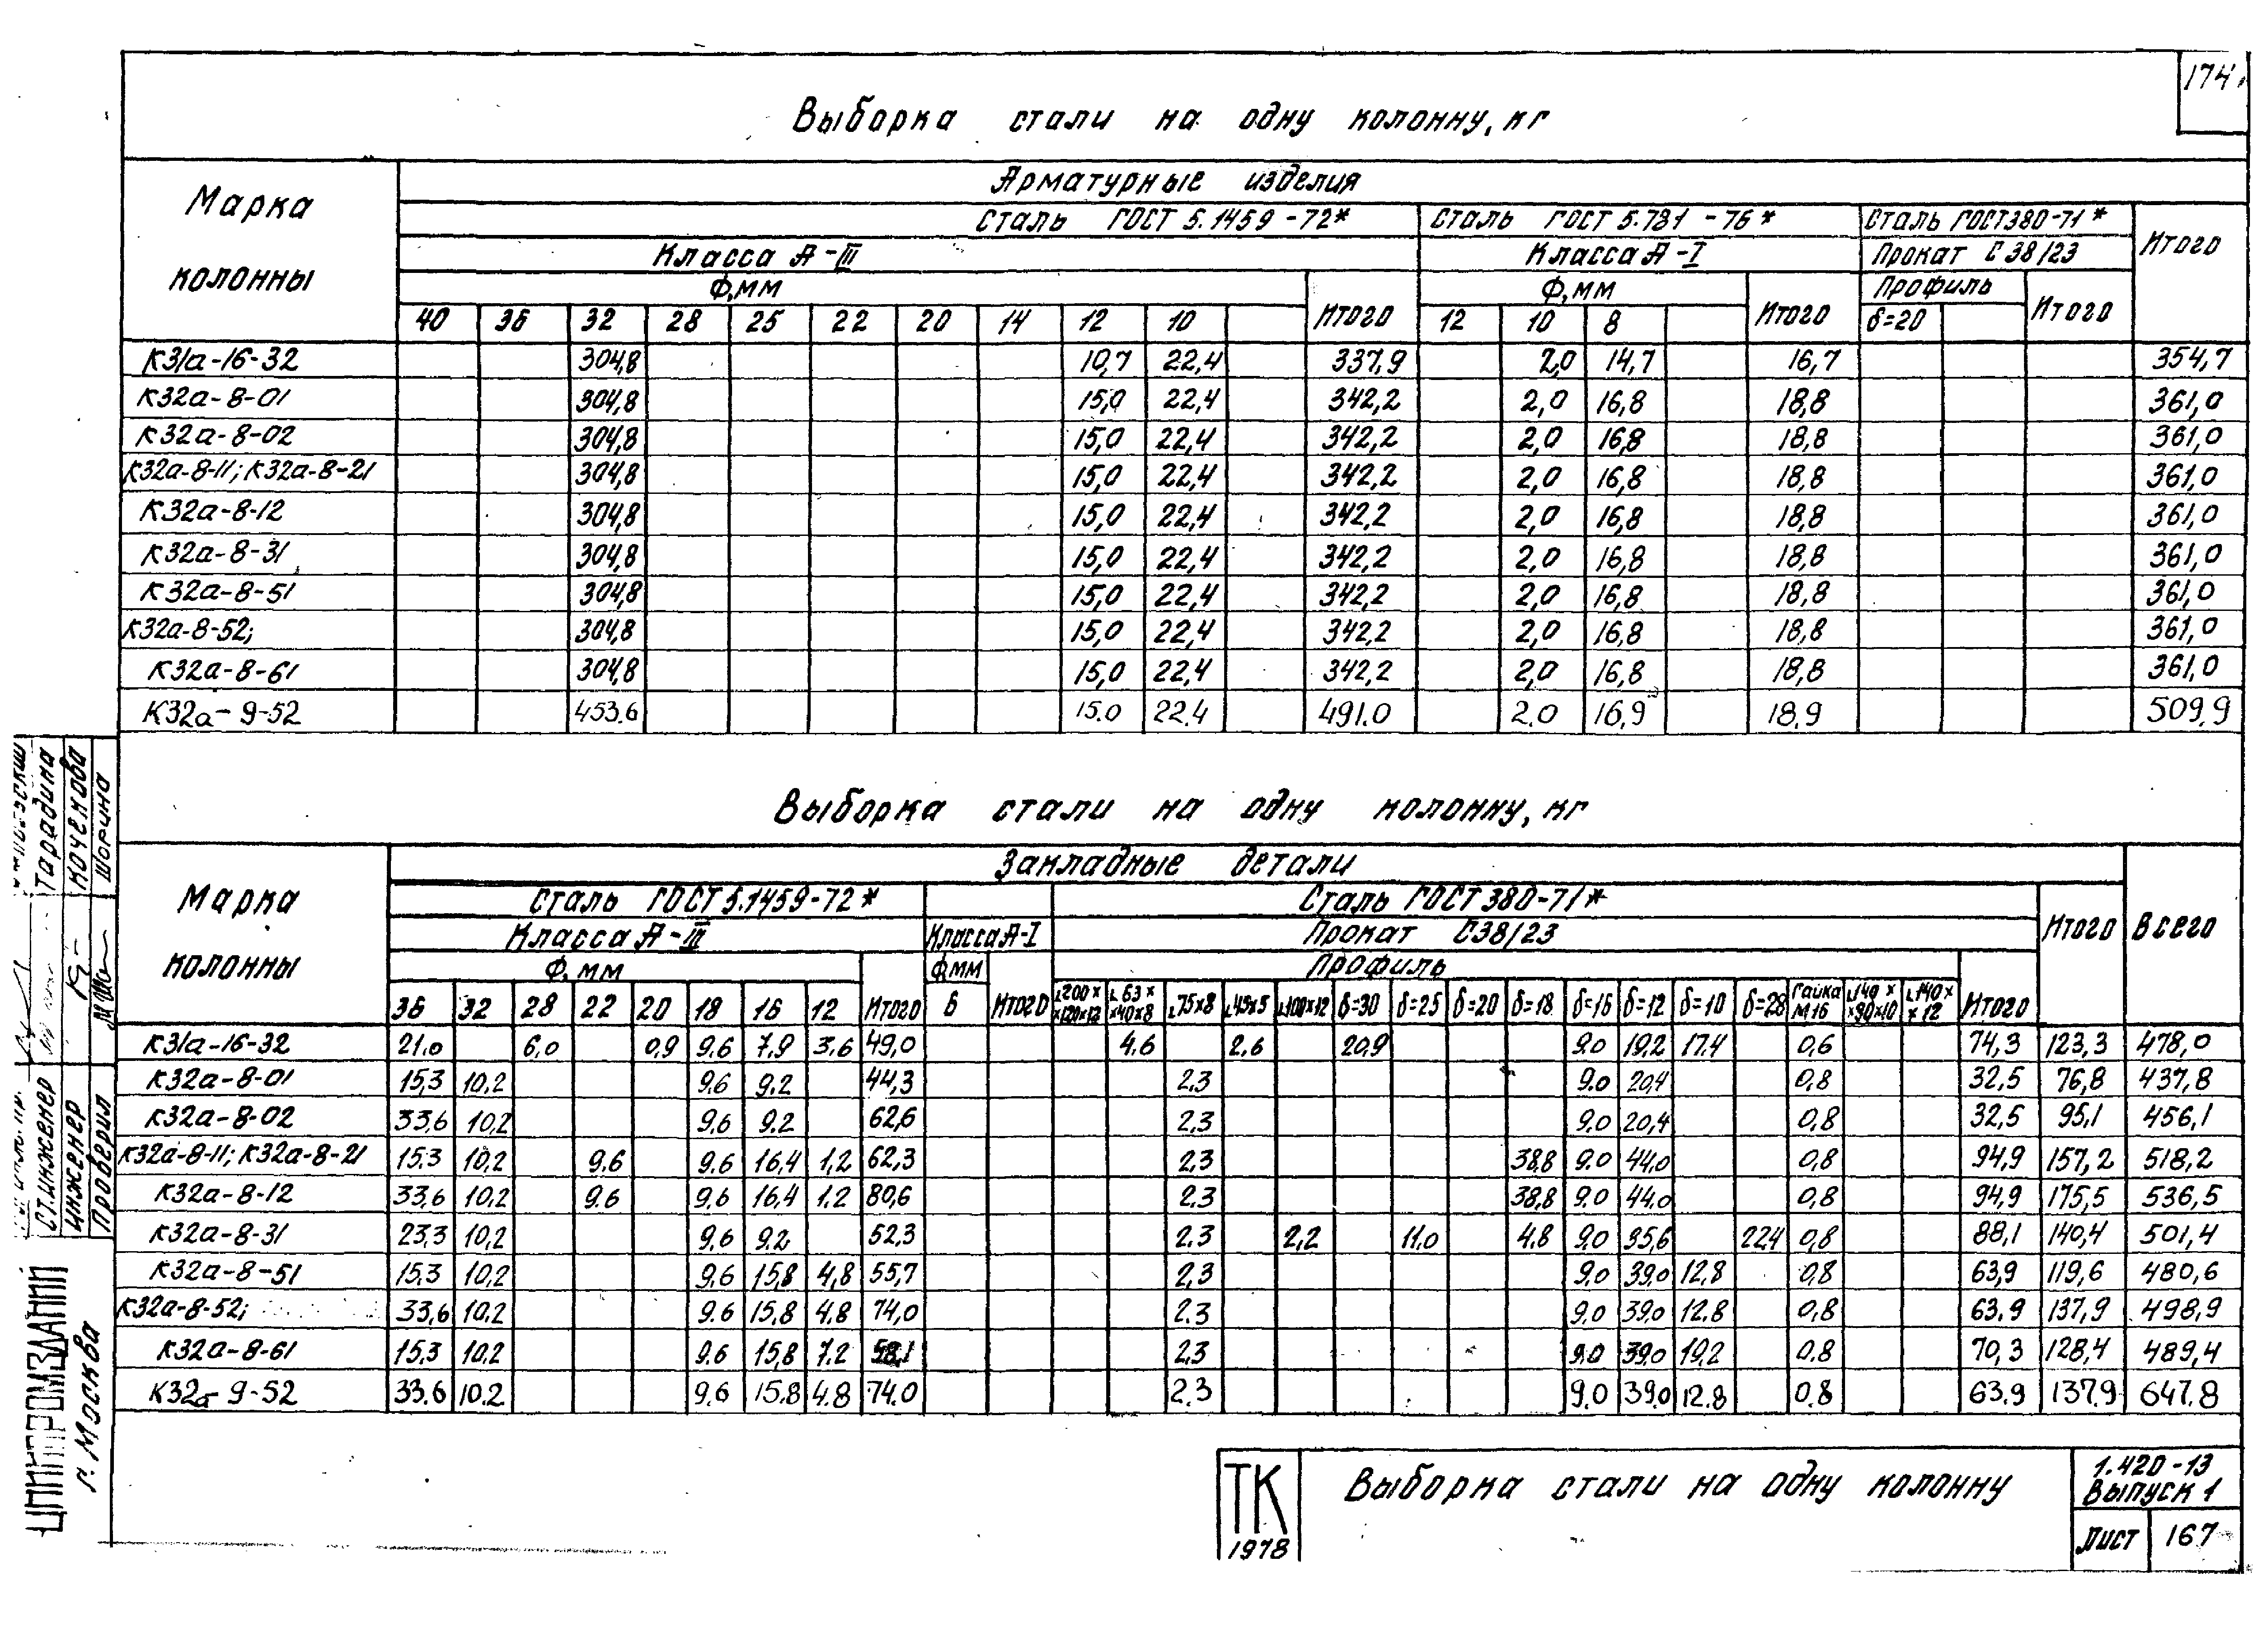 174
Выборка стали на одну колонну, кг
Марка колонны
Арматурные изделия
Сталь ГОСТ 5.1459-72* Сталь ГОСТ 5.781-76* Сталь ГОСТ 380-71* Итого
Класса А-III Класса А-I Прокат С38/23
Ф,мм Итого Ф,мм Итого Профиль Итого
40 36 32 28 25 22 20 14 12 10 12 10 8 δ=20
К31а-16-32 304,8 10,7 22,4 337,9 2,0 14,7 16,7 354,7
К32а-8-01 304,8 15,0 22,4 342,2 2,0 16,8 18,8 361,0
К32а-8-02 304,8 15,0 22,4 342,2 2,0 16,8 18,8 361,0
К32а-8-11; К32а-8-21 304,8 15,0 22,4 342,2 2,0 16,8 18,8 361,0
К32а-8-12 304,8 15,0 22,4 342,2 2,0 16,8 18,8 361,0
К32а-8-31 304,8 15,0 22,4 342,2 2,0 16,8 18,8 361,0
К32а-8-51 304,8 15,0 22,4 342,2 2,0 16,8 18,8 361,0
К32а-8-52; 304,8 15,0 22,4 342,2 2,0 16,8 18,8 361,0
К32а-8-61 304,8 15,0 22,4 342,2 2,0 16,8 18,8 361,0
К32а-9-52 453.6 15.0 22.4 491.0 2.0 16,9 18,9 509,9
Выборка стали на одну колонну, кг
Марка колонны
Закладные детали
Сталь ГОСТ 5.1459-72* Сталь ГОСТ 380-71* Итого Всего
Класса А-III Класса А-I Прокат С38/23
Ф, мм Ф,мм Профиль
36 32 28 22 20 18 16 12 Итого 6 Итого ∟200××120×12 ∟63××40×8 ∟75×8 ∟45×5 ∟100×12 δ=30 δ=25 δ=20 δ=18 δ=16 δ=12 δ=10 δ=28 Гайка М16 ∟140××90×10 ∟140××12 Итого
К31а-16-32 21.0 6,0 0,9 9,6 7,9 3,6 49,0 4,6 2,6 20,9 9.0 19,2 17.4 0,6 74,3 123,3 478,0
К32а-8-01 15,3 10,2 9,6 9,2 44,3 2,3 9.0 20,4 0,8 32,5 76,8 437,8
К32а-8-02 33,6 10,2 9,6 9.2 62,6 2,3 9.0 20,4 0,8 32,5 95,1 456,1
К32а-8-11; К32а-8-21 15,3 10,2 9,6 9,6 16,4 1,2 62,3 2,3 38,8 9.0 44,0 0,8 94,9 157,2 518,2
К32а-8-12 33,6 10,2 9,6 9,6 16,4 1,2 80,6 2,3 38,8 9.0 44,0 0,8 94,9 175,5 536,5
К32а-8-31 23,3 10,2 9,6 9,2 52,3 2,3 2,2 11.0 4,8 9,0 35,6 22,4 0,8 88,1 140,4 501,4
К32а-8-51 15,3 10,2 9,6 15,8 4,8 55,7 2,3 9.0 39,0 12,8 0,8 63,9 119,6 480,6
К32а-8-52; 33,6 10,2 9.6 15,8 4,8 74,0 2,3 9,0 39,0 12,8 0,8 63,9 137,9 498,9
К32а-8-61 15,3 10,2 9.6 15,8 7.2 58,1 2,3 9.0 39,0 19,2 0.8 70,3 128,4 489,4
К32а-9-52 33.6 10.2 9,6 15.8 4.8 74.0 2.3 9.0 39,0 12.8 0.8 63.9 137.9 647.8
Тарадина
Коченова
Шорина
Ст.инженер
Инженер
Проверил
ЦНИИПРОМЗДАНИЙ
г. Москва
ТК
1978
Выборка стали на одну колонну
1.420-13
Выпуск 1
Лист 167